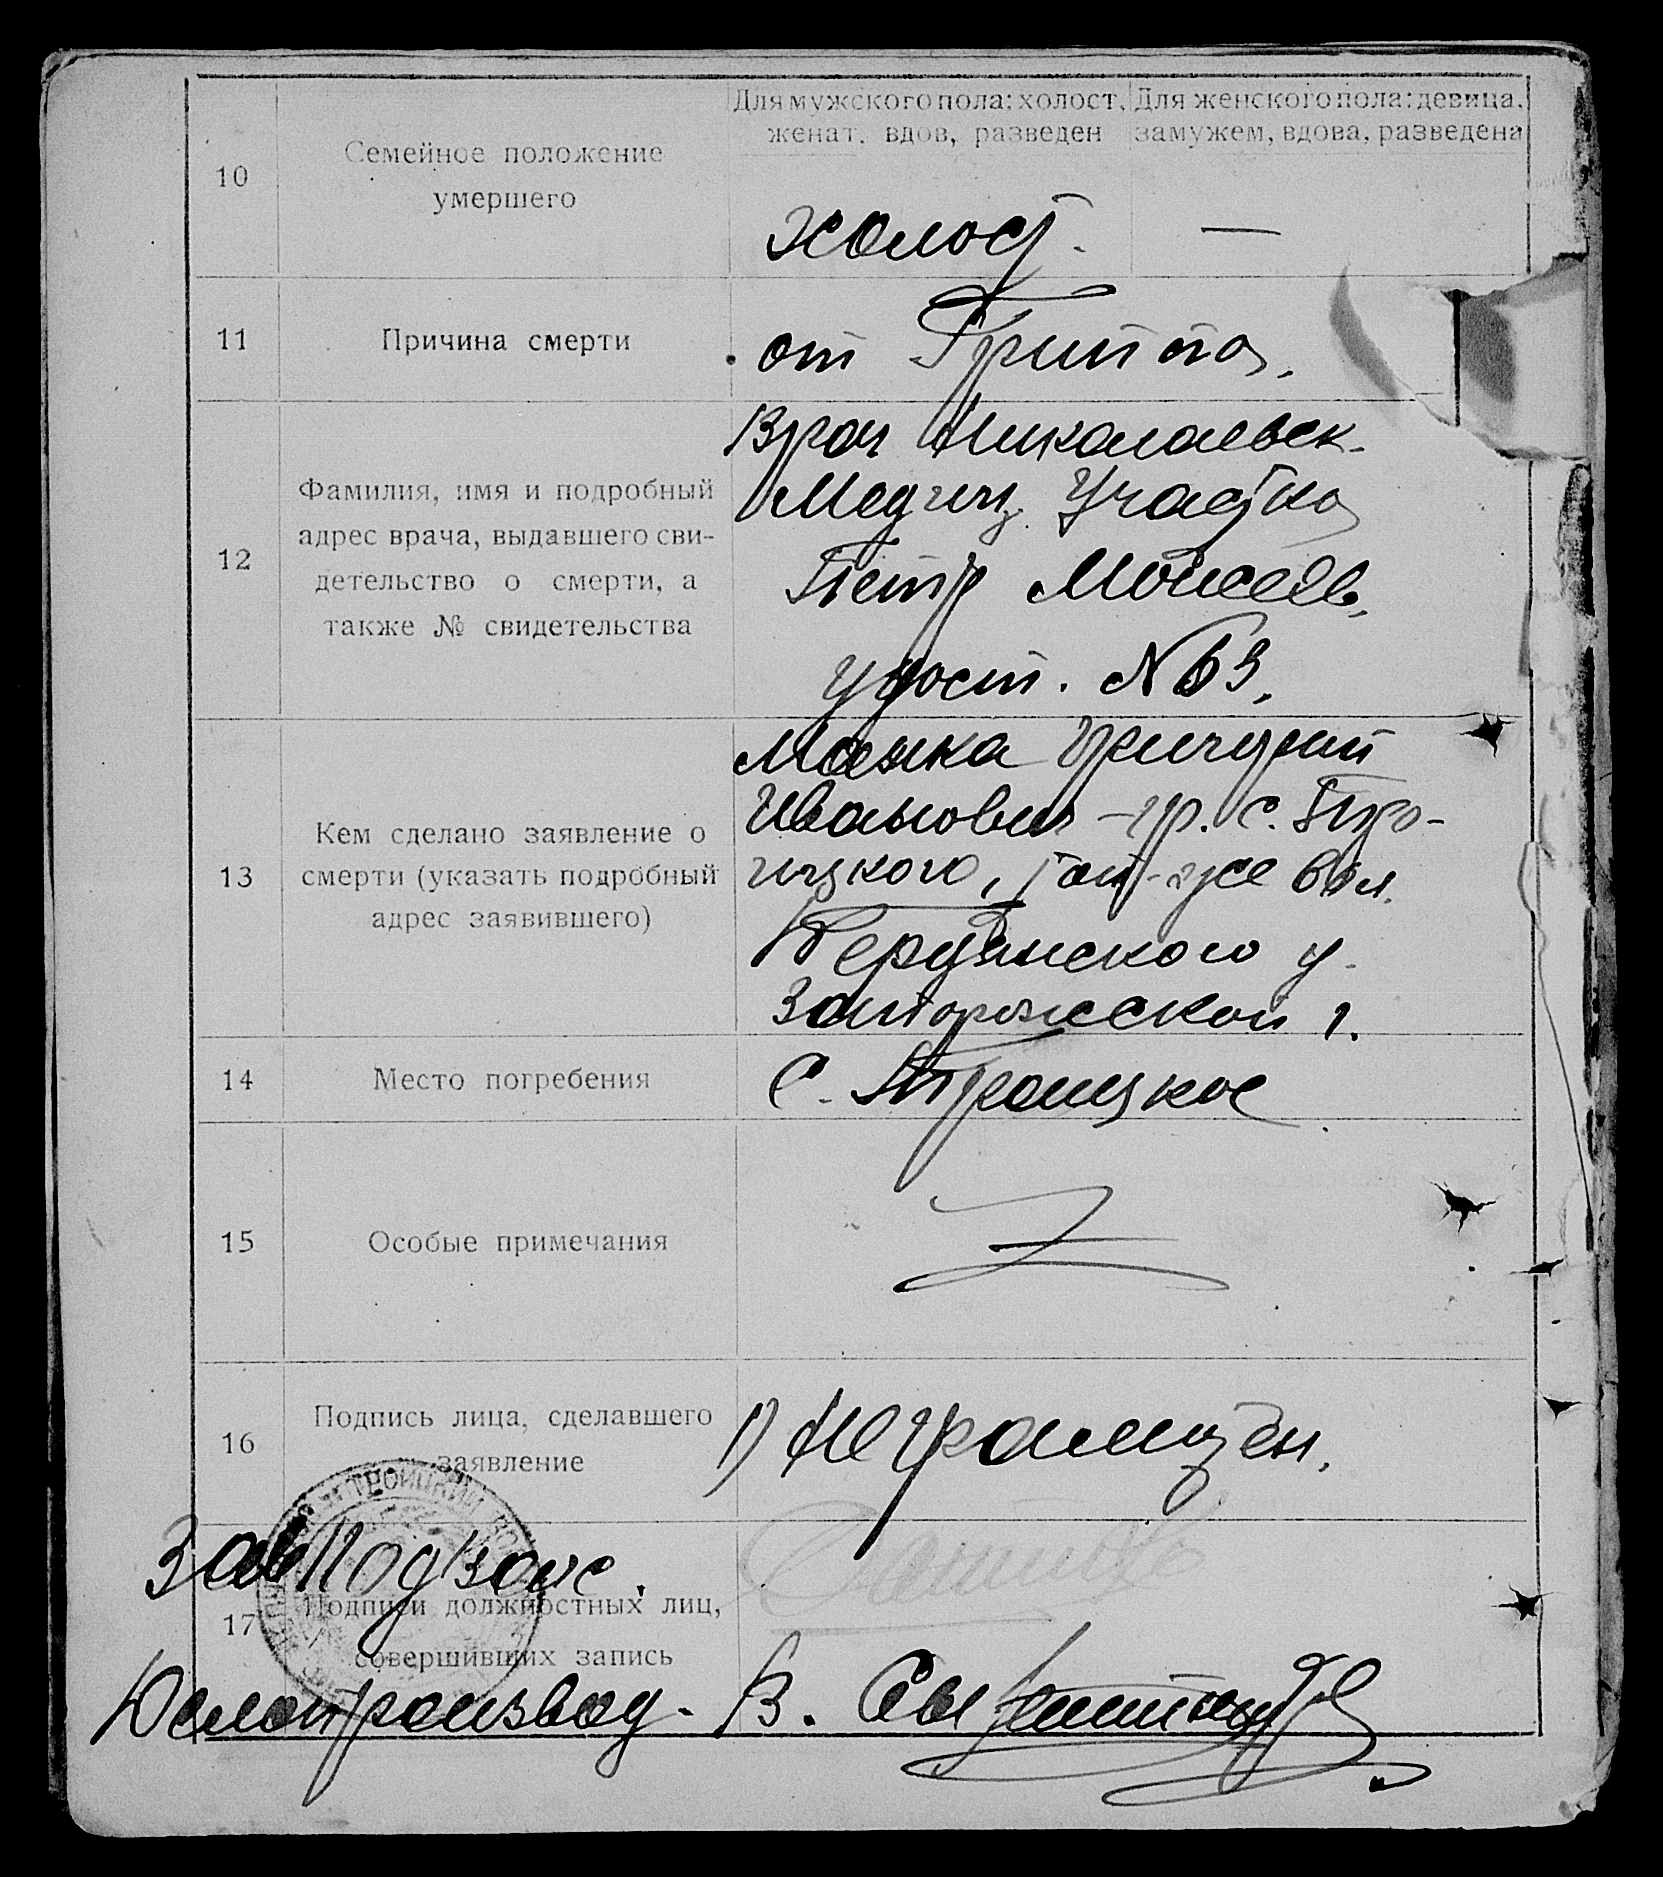 Для мужского пола: холост, женат, вдов, разведен
Для женского пола: девица, замужем, вдова, разведена
10
Семейное положение
умершего
холост. —
11
Причина смерти
от Гриппа.
12
Фамилия, имя и подробный
адрес врача, выдавшего сви-
детельство о смерти, а
также № свидетельства
Врач Николаевск.
Медиц. Участка
Петр Моисеев,
удост. № 63.
13
Кем сделано заявление о
смерти (указать подробный
адрес заявившего)
Мазка
Иванович – гр. с. Тро-
ицкого, той-же вол.
Бердянского у.
Запорожской г.
14
Место погребения
С. Троицкое
15
Особые примечания
16
Подпись лица, сделавшего
заявление
1) Неграмотен.
Зав Подзагс.
17
Подписи должностных лиц,
совершивших запись
Делопроизвод. В.